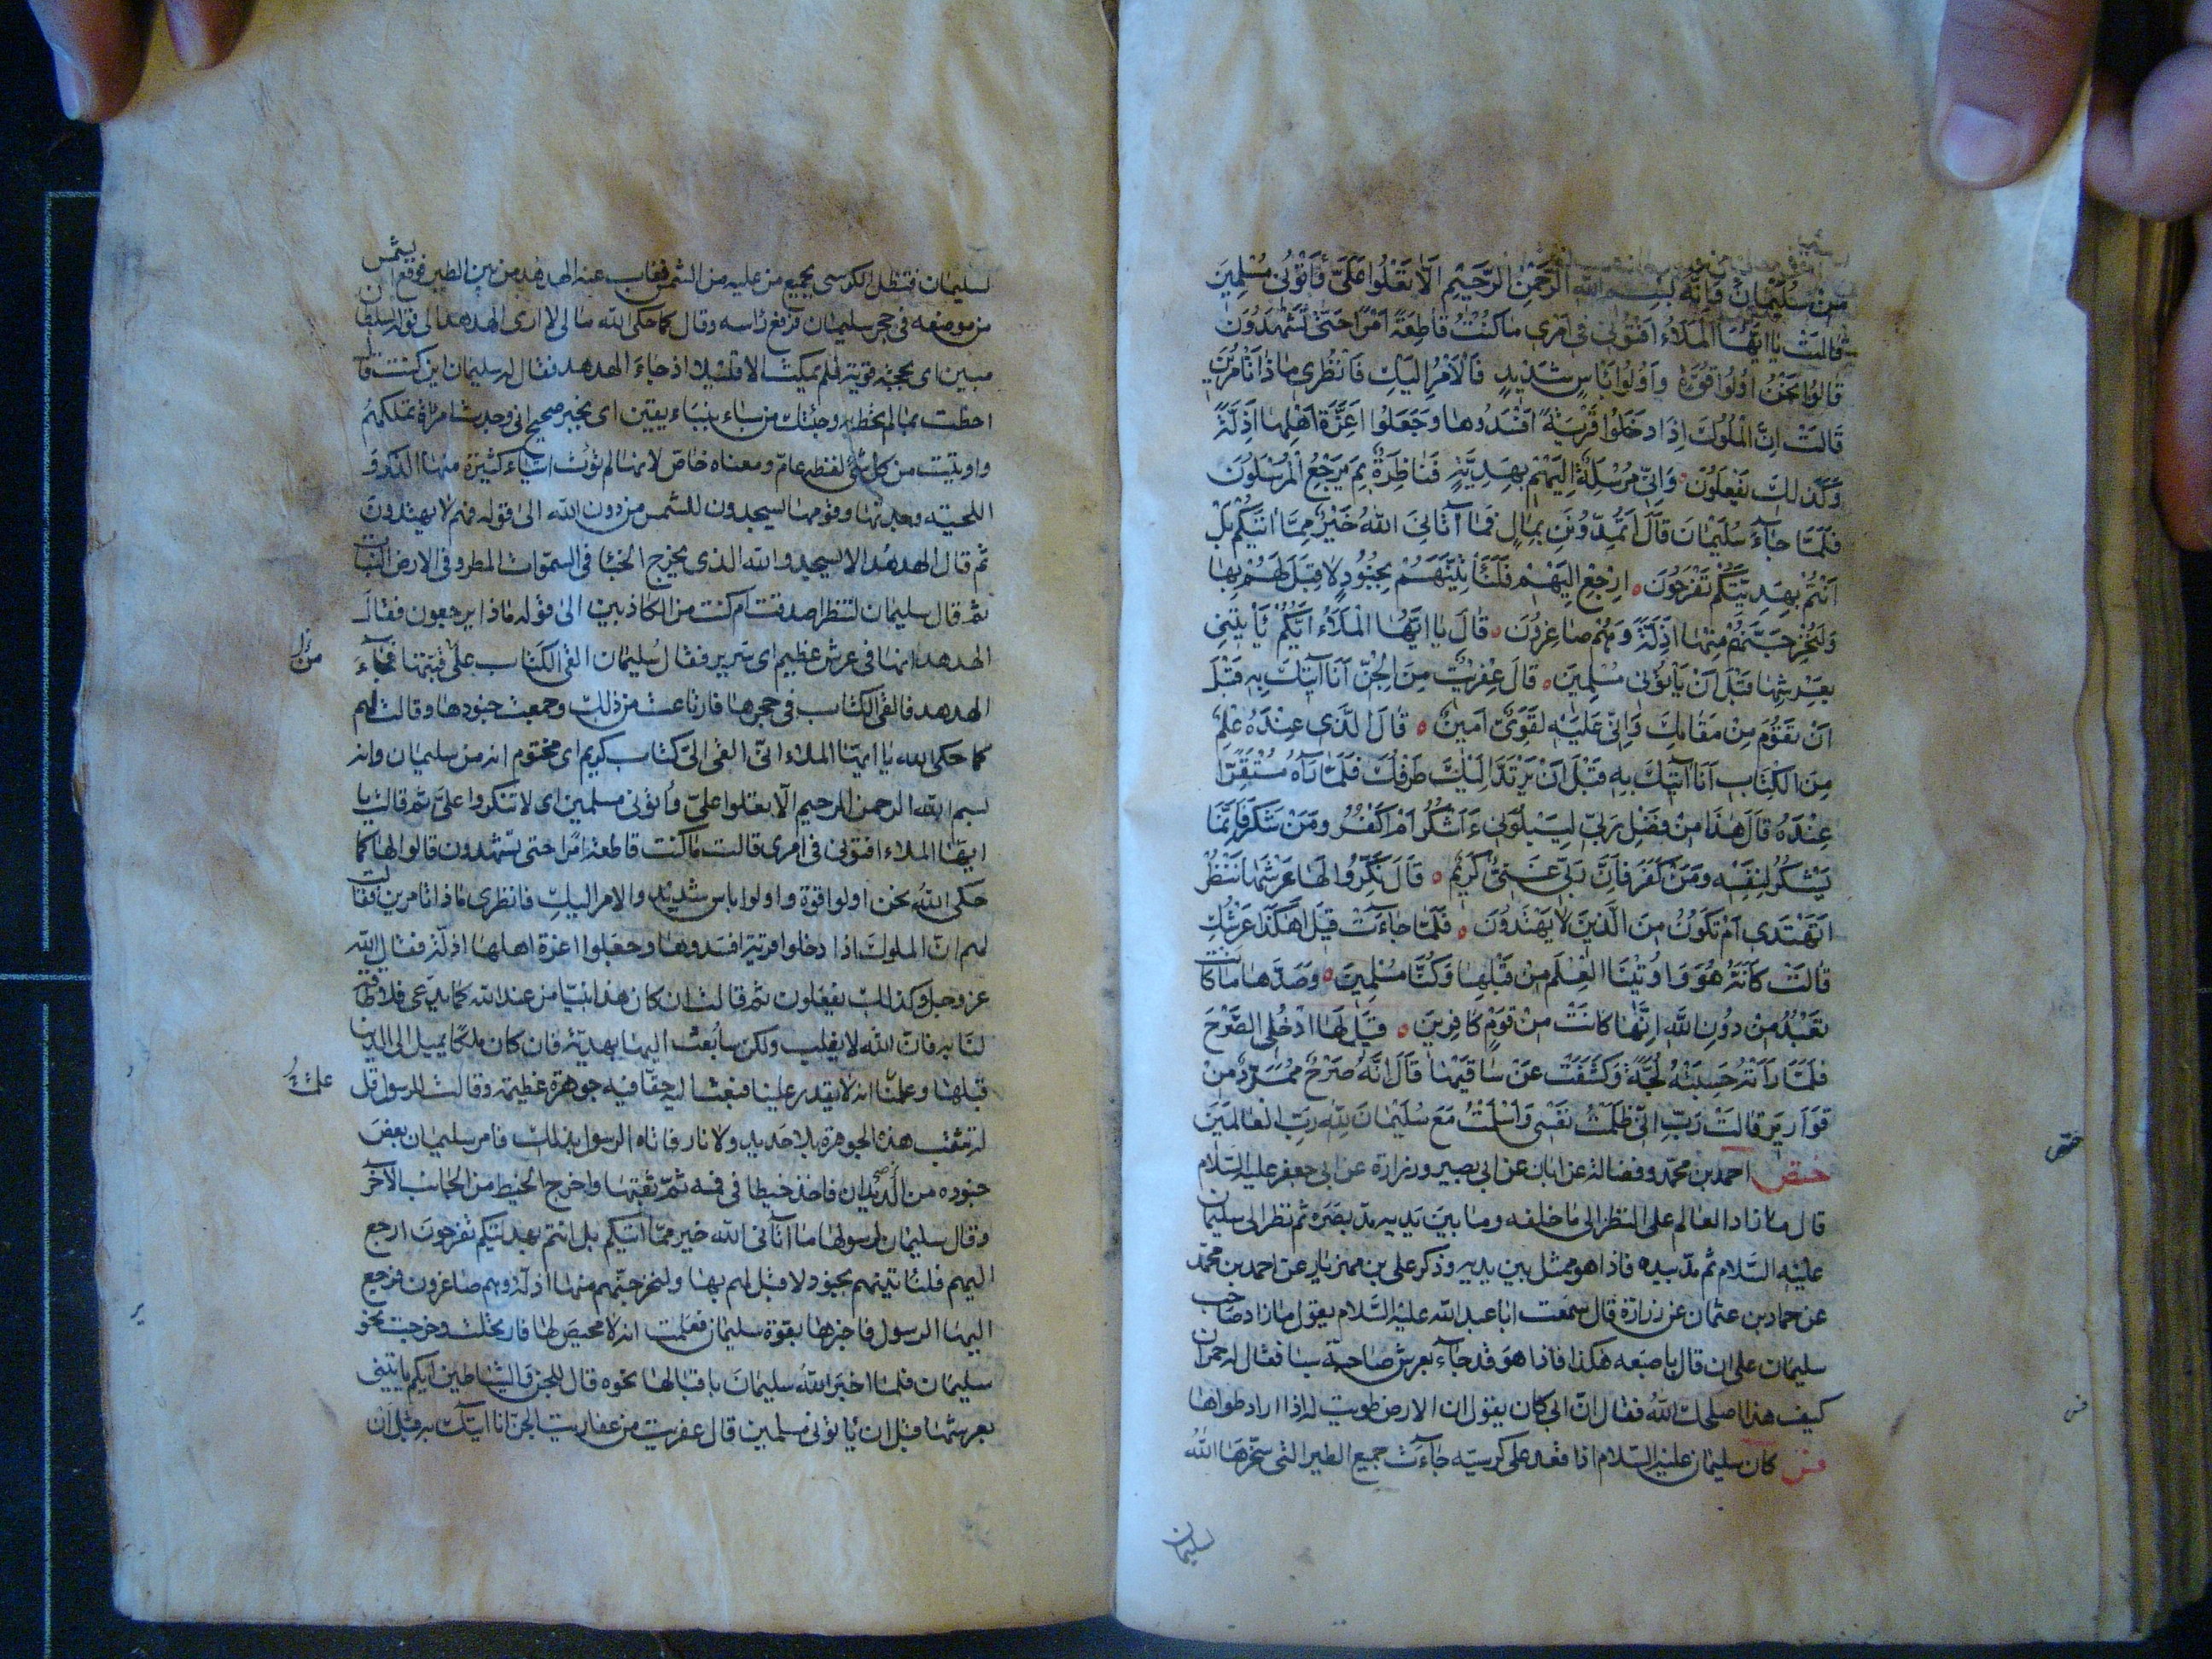 مِنْ سُلَيْمٰانَ وَاِنَّهُ بِسْمِ اللّٰهِ الرَّحْمٰنِ الرَّحٖيمِ اَلّٰا تَعْلُوا عَلَىَّ وَأْتُونٖى مُسْلِمٖينَ
قٰالَتْ يٰا اَيُّهَا الْمَلَاءُ اَفْتُونٖى فٖى اَمْرٖى مٰا كُنْتُ قٰاطِعَةً اَمْرًا حَتّٰى تَشْهَدُونَ
قٰالُوا نَحْنُ اُولُوا قُوَّةٍ وَاُولُوا بَأْسٍ شَدٖيدٍ وَالْاَمْرُ اِلَيْكِ فَانْظُرٖى مٰا ذٰا تَأْمُرٖينَ
قٰالَتْ اِنَّ الْمُلُوكَ اِذٰا دَخَلُوا قَرْيَةً اَفْسَدُوهٰا وَجَعَلُوا اَعِزَّةَ اَهْلِهٰا اَذِلَّةً
وَكَذٰلِكَ يَفْعَلُونَ وَاِنّٖى مُرْسِلَةٌ اِلَيْهِمْ بِهَدِيَّةٍ فَنٰاظِرَةٌ بِمَ يَرْجِعُ الْمُرْسَلُونَ
فَلَمّٰا جٰاءَ سُلَيْمٰانَ قٰالَ اَتُمِدُّونَنِ بِمٰالٍ فَمٰا آتٰانِىَ اللّٰهُ خَيْرٌ مِمّٰا اٰتٰيكُمْ بَلْ
اَنْتُمْ بِهَدِيَّتِكُمْ تَفْرَحُونَ اِرْجِعْ اِلَيْهِمْ فَلَنَأْتِيَنَّهُمْ بِجُنُودٍ لٰا قِبَلَ لَهُمْ بِهٰا
وَلَنُخْرِجَنَّهُمْ مِنْهٰا اَذِلَّةً وَهُمْ صٰاغِرُونَ قٰالَ يٰا اَيُّهَا الْمَلَاءُ اَيُّكُمْ يَأْتٖينٖى
بِعَرْشِهٰا قَبْلَ اَنْ يَأْتُونٖى مُسْلِمٖينَ قٰالَ عِفْرٖيتٌ مِنَ الْجِنِّ اَنَا آتٖيكَ بِهٖ قَبْلَ
اَنْ تَقُومَ مِنْ مَقٰامِكَ وَاِنّٖى عَلَيْهِ لَقَوِىٌّ اَمٖينٌ قٰالَ الَّذٖى عِنْدَهُ عِلْمٌ
مِنَ الْكِتٰابِ اَنَا آتٖيكَ بِهٖ قَبْلَ اَنْ يَرْتَدَّ اِلَيْكَ طَرْفُكَ فَلَمّٰا رَآهُ مُسْتَقِرًّا
عِنْدَهُ قٰالَ هٰذَا مِنْ فَضْلِ رَبّٖى لِيَبْلُوَنٖى ءَاَشْكُرُ اَمْ اَكْفُرُ وَمَنْ شَكَرَ فَاِنَّمٰا
يَشْكُرُ لِنَفْسِهٖ وَمَنْ كَفَرَ فَاِنَّ رَبّٖى غَنِىٌّ كَرٖيمٌ قٰالَ نَكِّرُوا لَهٰا عَرْشَهٰا نَنْظُرْ
اَتَهْتَدٖى اَمْ تَكُونُ مِنَ الَّذٖينَ لٰا يَهْتَدُونَ فَلَمّٰا جٰاءَتْ قٖيلَ اَهٰكَذٰا عَرْشُكِ
قٰالَتْ كَاَنَّهُ هُوَ وَاُوتٖينَا الْعِلْمَ مِنْ قَبْلِهٰا وَكُنّٰا مُسْلِمٖينَ وَصَدَّهٰا مٰا كٰانَتْ
تَعْبُدُ مِنْ دُونِ اللّٰهِ اِنَّهٰا كٰانَتْ مِنْ قَوْمٍ كٰافِرٖينَ قٖيلَ لَهَا ادْخُلِى الصَّرْحَ
فَلَمّٰا رَاَتْهُ حَسِبَتْهُ لُجَّةً وَكَشَفَتْ عَنْ سٰاقَيْهٰا قٰالَ اِنَّهُ صَرْحٌ مُمَرَّدٌ مِنْ
قَوٰارٖيرَ قٰالَتْ رَبِّ اِنّٖى ظَلَمْتُ نَفْسٖى وَاَسْلَمْتُ مَعَ سُلَيْمٰانَ لِلّٰهِ رَبِّ الْعٰالَمٖينَ
ختص احمد بن محمّد وفضالة عن ابان عن ابى بصير وزرارة عن ابى جعفر عليه السّلام
ختص
قال ما زاد العالم على النظر الى ما خلفه وما بين يديه مدّ بصره ثم نظر الى سليمان
عليه السّلام ثم مدّ بيده فاذا هو ممثل بين يديه وذكر على بن مهزيار عن احمد بن محمّد
عن حماد بن عثمان عن زرارة قال سمعت ابا عبد اللّه عليه السّلام يقول ما زاد صاحب
سليمان على ان قال باصبعه هكذا فاذا هو قد جاء بعرش صاحبة سبا فقال له حمران
كيف هذا اصلحك اللّه فقال انّ ابى كان يقول ان الارض طويت له اذا اراد طواها
فس كان سليمان عليه السّلام اذا قعد على كرسيّه جاءت جميع الطير الّتى سخّرها اللّه
فس
لسليمان
لسليمان فتظل الكرسى بجميع من عليه من الشمس فغاب عنه الهدهد من بين الطير فوقع الشمس
من موضعه فى حجر سليمان فرفع راسه وقال كما حكى اللّه ما لى لا ارى الهدهد الى قوله بسلطان
مبين اى بحجة قويّة فلم يمكث الا قليلا اذ جاء الهدهد فقال له سليمان اين كنت قال
احطت بما لم تحط به وجئتك من سباء بنباء يقين اى بخبر صحيح انى وجدت امراة تملكهم
واوتيت من كل شئ لفظه عامّ ومعناه خاصّ لانها لم تؤت اشياء كثيرة منها الذكر و
اللحية وجدتها وقومها يسجدون للشمس من دون اللّه الى قوله فهم لا يهتدون
ثم قال الهدهد الا يسجدوا للّه الذى يخرج الخبا فى السّموات المطر وفى الارض النبات
ثم قال سليمان لننظر اصدقت ام كنت من الكاذبين الى قوله ما ذا يرجعون فقال
الهدهد انها فى عرش عظيم اى سرير فقال سليمان الق الكتاب على قبّتها فجاء
الهدهد فالقى الكتاب فى حجرها فارتاعت من ذلك وجمعت جنودها وقالت لهم
كما حكى اللّه يا ايّها الملاء انّى القى الىّ كتاب كريم اى مختوم انه من سليمان وانه
بسم اللّه الرحمن الرحيم الّا تعلوا علىّ وأتونى مسلمين اى لا تتكبروا علىّ ثم قالت يا
ايّها الملاء افتونى فى امرى قالت ما كنت قاطعة امرًا حتى تشهدون قالوا لها كما
حكى اللّه نحن اولوا قوة واولوا باس شديد والامر اليك فانظرى ما ذا تامرين فقالت
لهم انّ الملوك اذا دخلوا قرية افسدوها وجعلوا اعزة اهلها اذلّة فقال اللّه
عز وجل وكذلك يفعلون ثم قالت ان كان هذا نبيّا من عند اللّه كما يدّعى فلا طاقة
لنا به فانّ اللّه لا يغلب ولكن سأبعث اليه بهديّة فان كان ملكًا يميل الى الدنيا
قبلها وعلمنا انه لا يقدر علينا فبعثت اليه حقّا فيه جوهرة عظيمة وقالت للرسول قل
له يثقب هذه الجوهرة بلا حديد ولا نار فاتاه الرسول بذلك فامر سليمان بعض
جنوده من الديدان فاخذ خيطا فى فمه ثمّ ثقبها واخرج الخيط من الجانب الآخر
وقال سليمان لرسولها ما آتانى اللّه خير ممّا اتيكم بل انتم بهديّتكم تفرحون ارجع
اليهم فلنأتينهم بجنود لا قبل لهم بها ولنخرجنّهم منها اذلّة وهم صاغرون فرجع
اليها الرسول فاخبرها بقوة سليمان فعلمت انه لا محيص لها فارتحلت وخرجت نحو
سليمان فلما اخبر اللّه سليمان باقبالها نحوه قال للجن والشياطين ايكم ياتينى
بعرشها قبل ان يأتونى مسلمين قال عفريت من عفاريت الجنّ انا اتيك به قبل ان